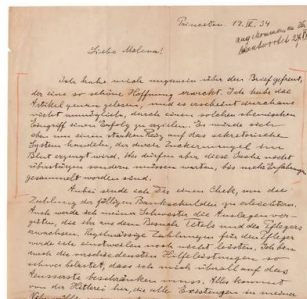 Princeton. 17. IV. 34
angekommen
Liebe Melana!
Ich habe mich ungemein über den Brief gefreut,
der eine so schöne Hoffnung erweckt. Ich habe das
Artikel genau gelesen, und es erscheint durchaus
nicht unmöglich, durch einen solchen chemischen
Eingriff einen Erfolg zu erzielen. Es würde sich
aber um einen starken Reiz auf das sekretorische
System handeln, der durch Zuckermangel im
Blut erzeugt wird. Wir dürfen aber diese Sache nicht
überstürzen sondern müssen warten, bis mehr Erfahrungen
gesammelt worden sind.
Anbei sende ich Dir einen Check, um die
Zahlung der fälligen Bankschulden zu erleichtern.
Auch werde ich meiner Schwester die Auslagen
die ihr aus dem Besuch Tetels und des Pflegers
erwachsen. Regelmässige Zahlungen für den Pfleger
werde ich einstweilen noch nicht leisten. Ich bin
auch die verschiedensten Hilfeleistungen so
schwer belastet, dass ich mich überall auf das
Äusserste beschränken muss. Alles kommt
von der Hitlerei her, die alle Existenzen in meiner